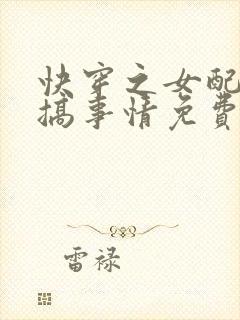 快穿之女配
搞事情免费
雷禄